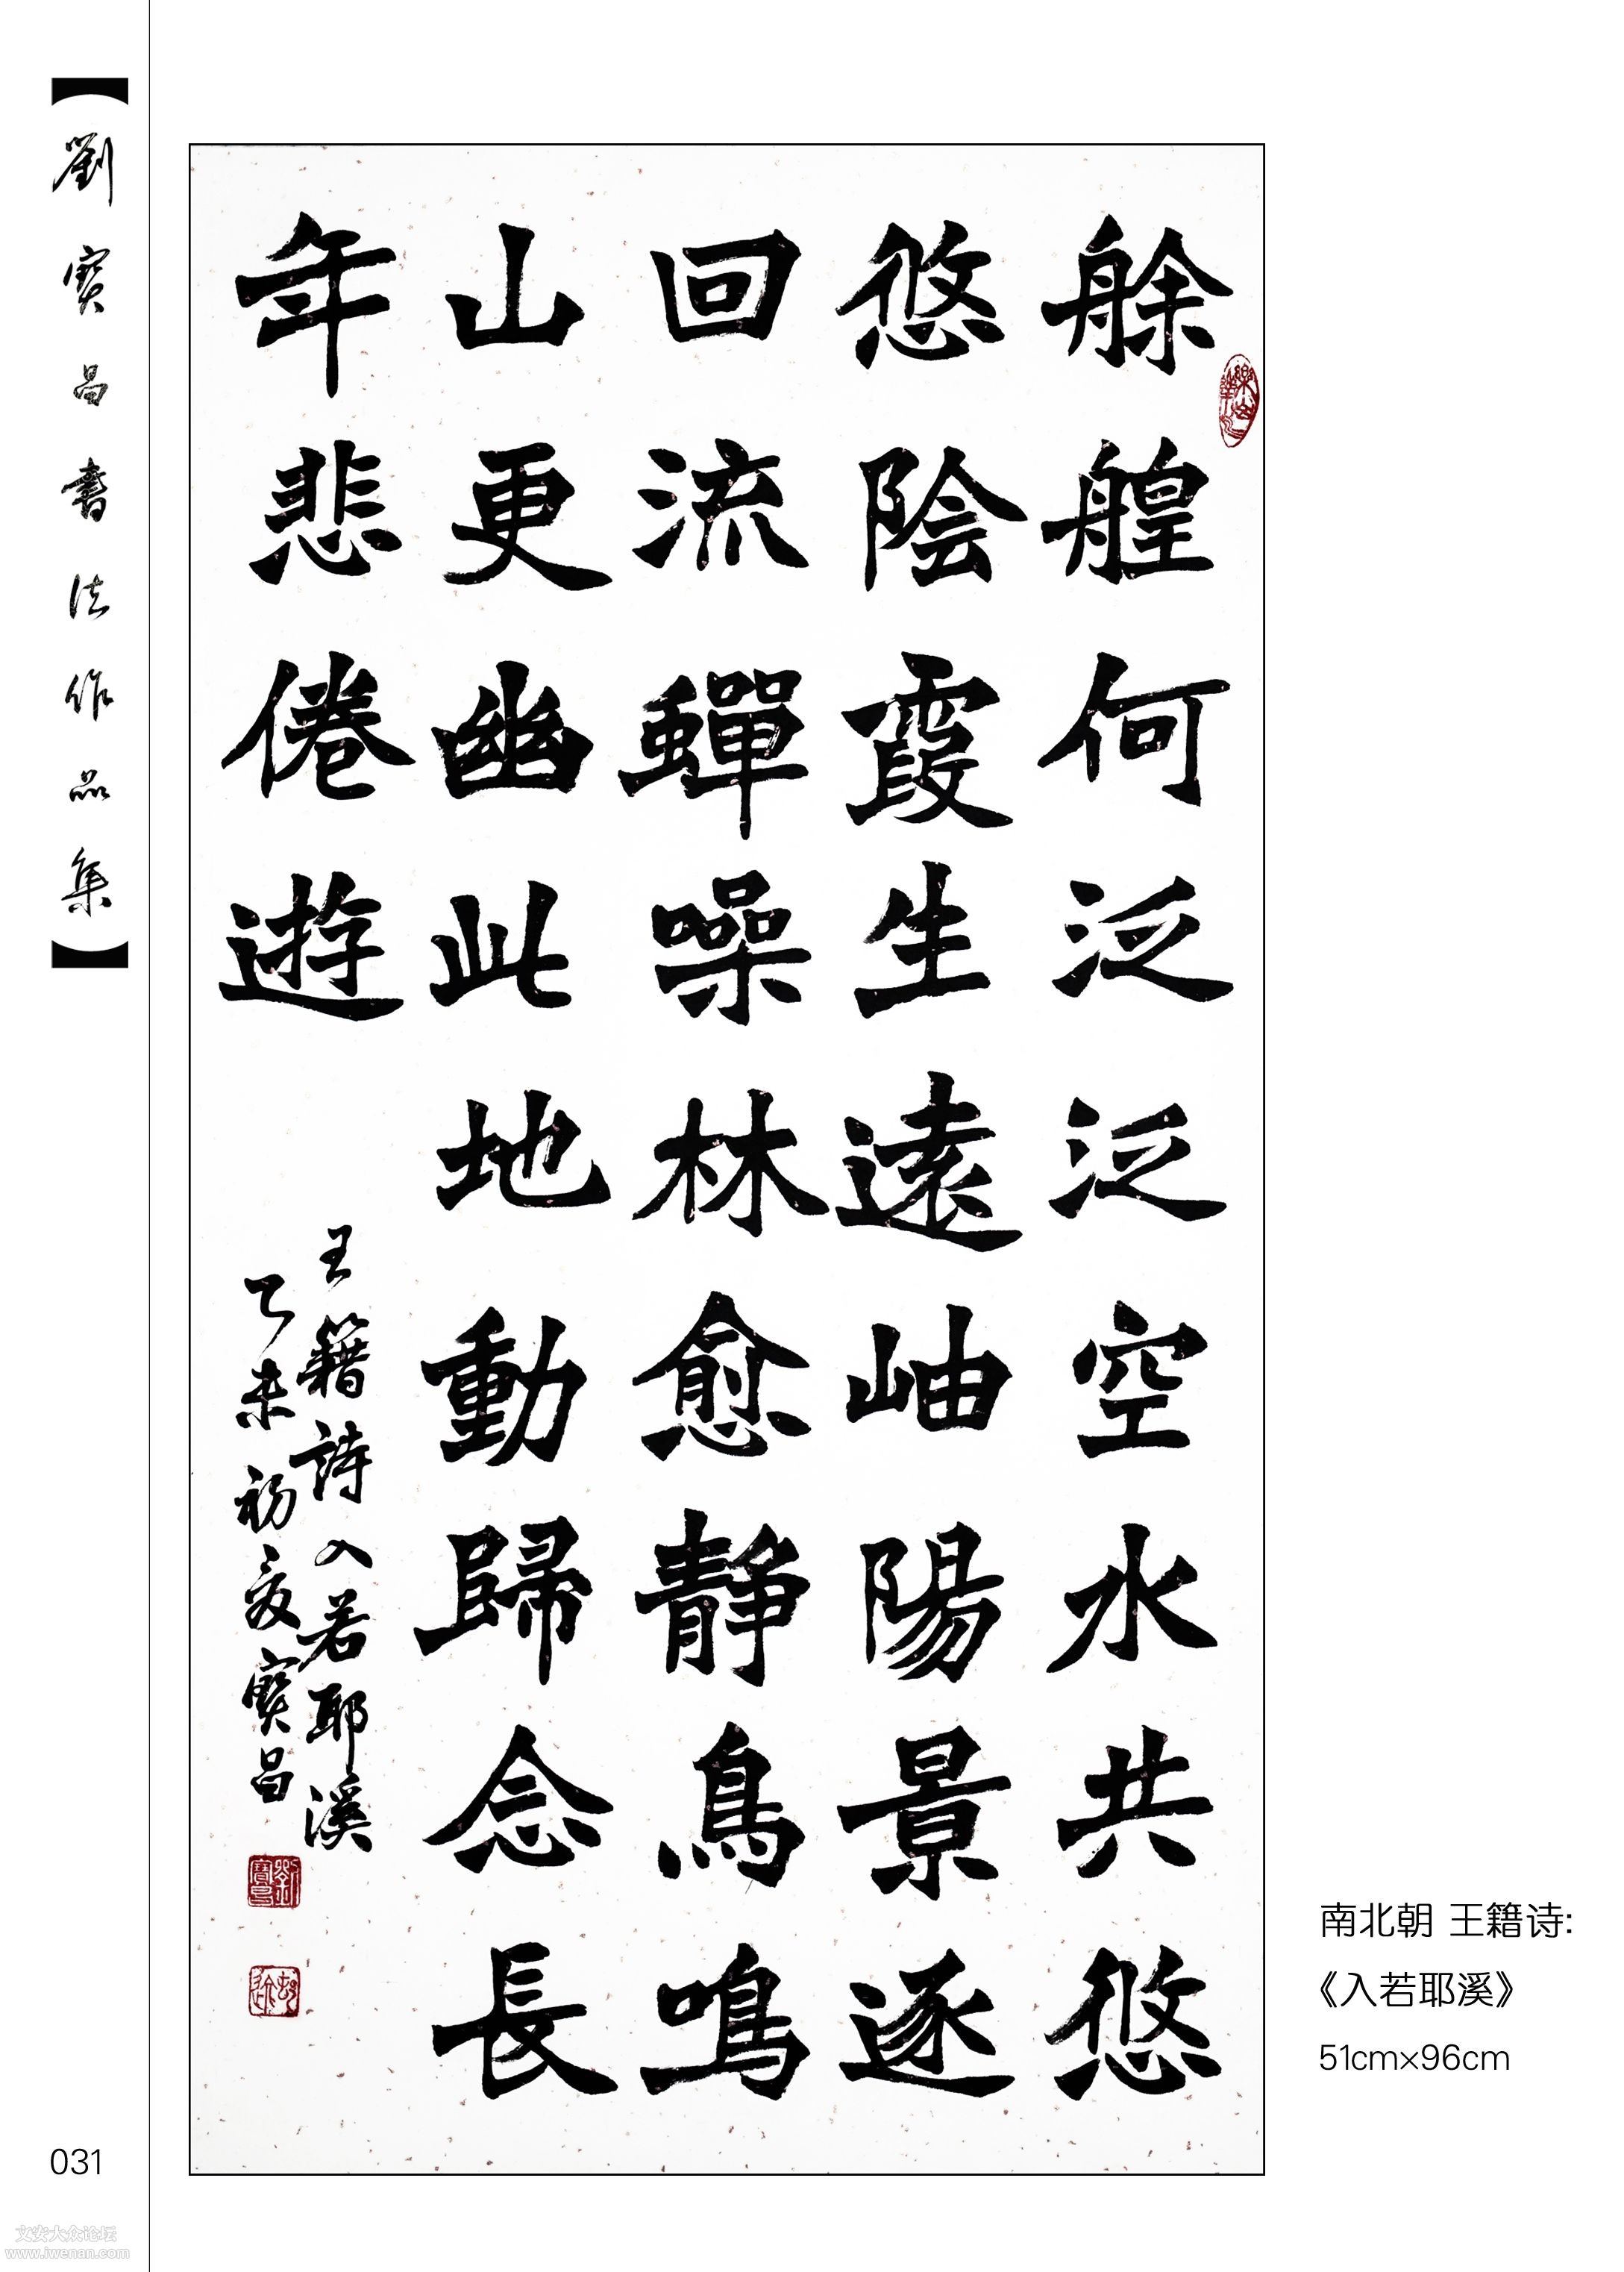 【劉寶昌書法作品集】
艅艎何泛泛空水共悠
悠陰霞生遠岫陽景逐
回流蟬噪林愈静鳥鳴
山更幽此地動歸念長
年悲倦遊
王籍詩入若耶溪
乙未初夏寶昌
劉寶昌
南北朝 王籍诗:
《入若耶溪》
51cm×96cm
031
文安大众论坛
www.iwenan.com